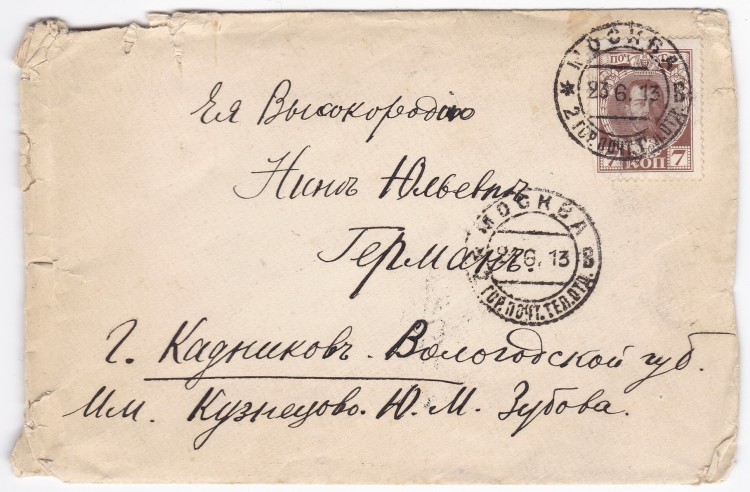 МОСКВА
23.6.13 В
2 ГОР.ПОЧТ.ТЕЛ.ОТД.
ПОЧ
7 КОП 7
Ея Высокородію
Нинѣ Юльевнѣ
Германъ.
МОСКВА
23.6.13 В
ГОР.ПОЧТ.ТЕЛ.ОТД.
г. Кадниковъ. Вологодской губ.
Им. Кузнецово. Ю. М. Зубова.